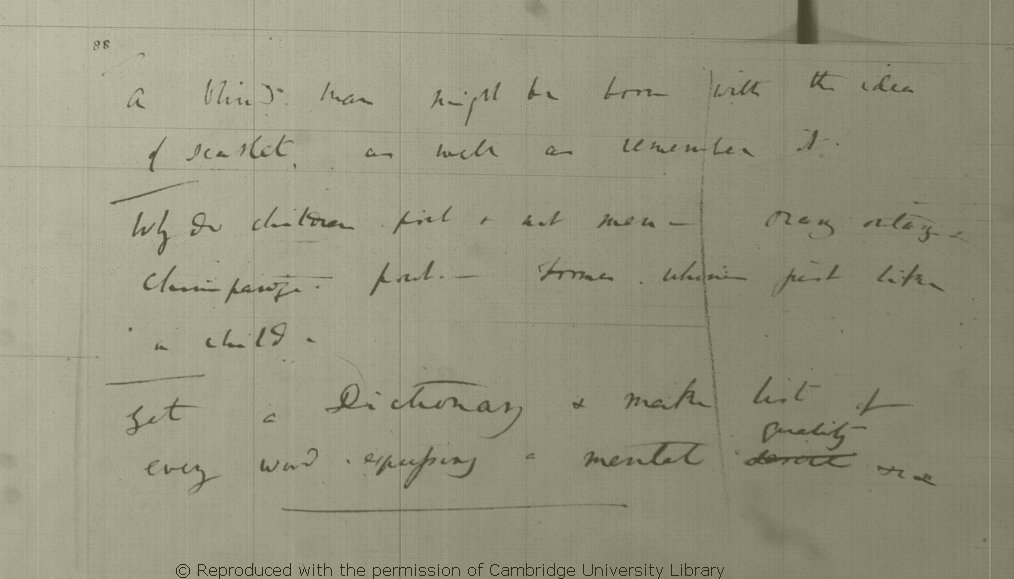 88
A blind man might be born with the idea
of scarlet, as well as remember it.
Why do children pout & not men – Orang outang &
Chimpanzee pout. – Former whines just like
a child.
Get a Dictionary & make list of
every word expressing a mental desire quality &c &
© Reproduced with the permission of Cambridge University Library